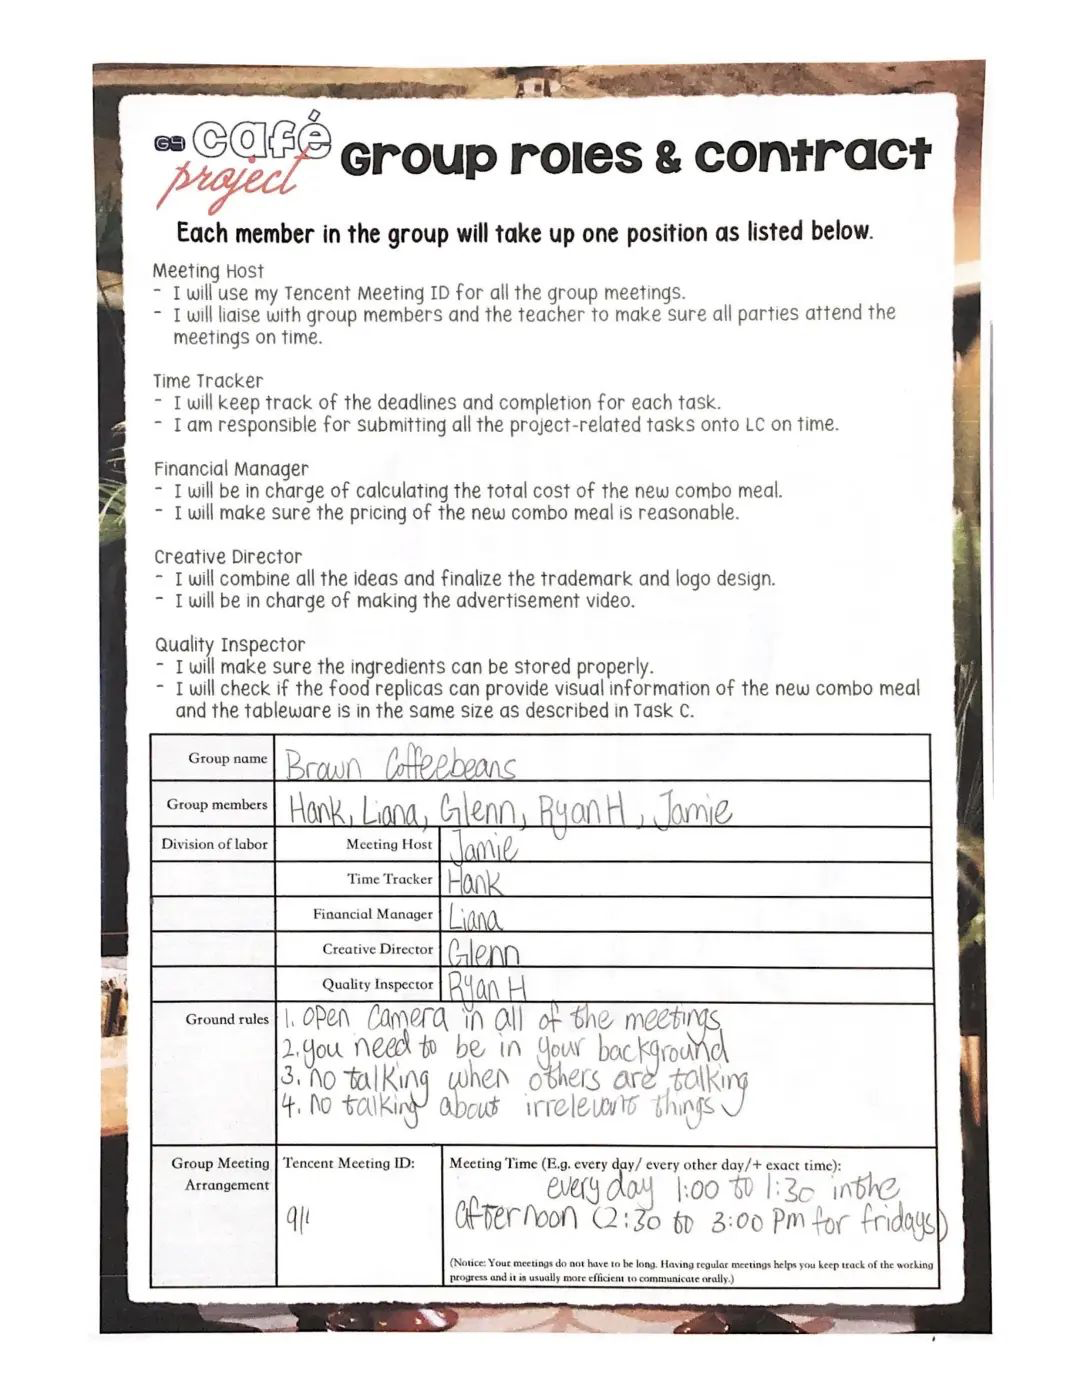 G4 café
project
Group roles & contract
Each member in the group will take up one position as listed below.
Meeting Host
- I will use my Tencent Meeting ID for all the group meetings.
- I will liaise with group members and the teacher to make sure all parties attend the
meetings on time.
Time Tracker
- I will keep track of the deadlines and completion for each task.
- I am responsible for submitting all the project-related tasks onto LC on time.
Financial Manager
- I will be in charge of calculating the total cost of the new combo meal.
- I will make sure the pricing of the new combo meal is reasonable.
Creative Director
- I will combine all the ideas and finalize the trademark and logo design.
- I will be in charge of making the advertisement video.
Quality Inspector
- I will make sure the ingredients can be stored properly.
- I will check if the food replicas can provide visual information of the new combo meal
and the tableware is in the same size as described in Task C.
Group name Brown Coffeebeans
Group members Hank, Liana, Glenn, Ryan H, Jamie
Division of labor Meeting Host Jamie
Time Tracker Hank
Financial Manager Liana
Creative Director Glenn
Quality Inspector Ryan H
Ground rules 1. open camera in all of the meetings
2. you need to be in your background
3. no talking when others are talking
4. no talking about irrelevant things
Group Meeting Arrangement
Tencent Meeting ID:
Meeting Time (E.g. every day/ every other day/+ exact time):
every day 1:00 to 1:30 in the
afternoon (2:30 to 3:00 pm for fridays)
(Notice: Your meetings do not have to be long. Having regular meetings helps you keep track of the working
progress and it is usually more efficient to communicate orally.)